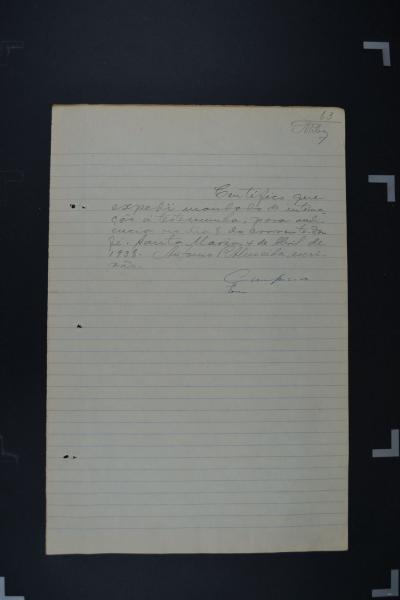 63
Certifico que
expedi mandado de intima-
ção á testemunha, para audi-
encia no dia 8 do corrente. Dou
fé. Santa Maria, 4 de Abril de
1938. Antonio P. Almeida, escri-
vão.